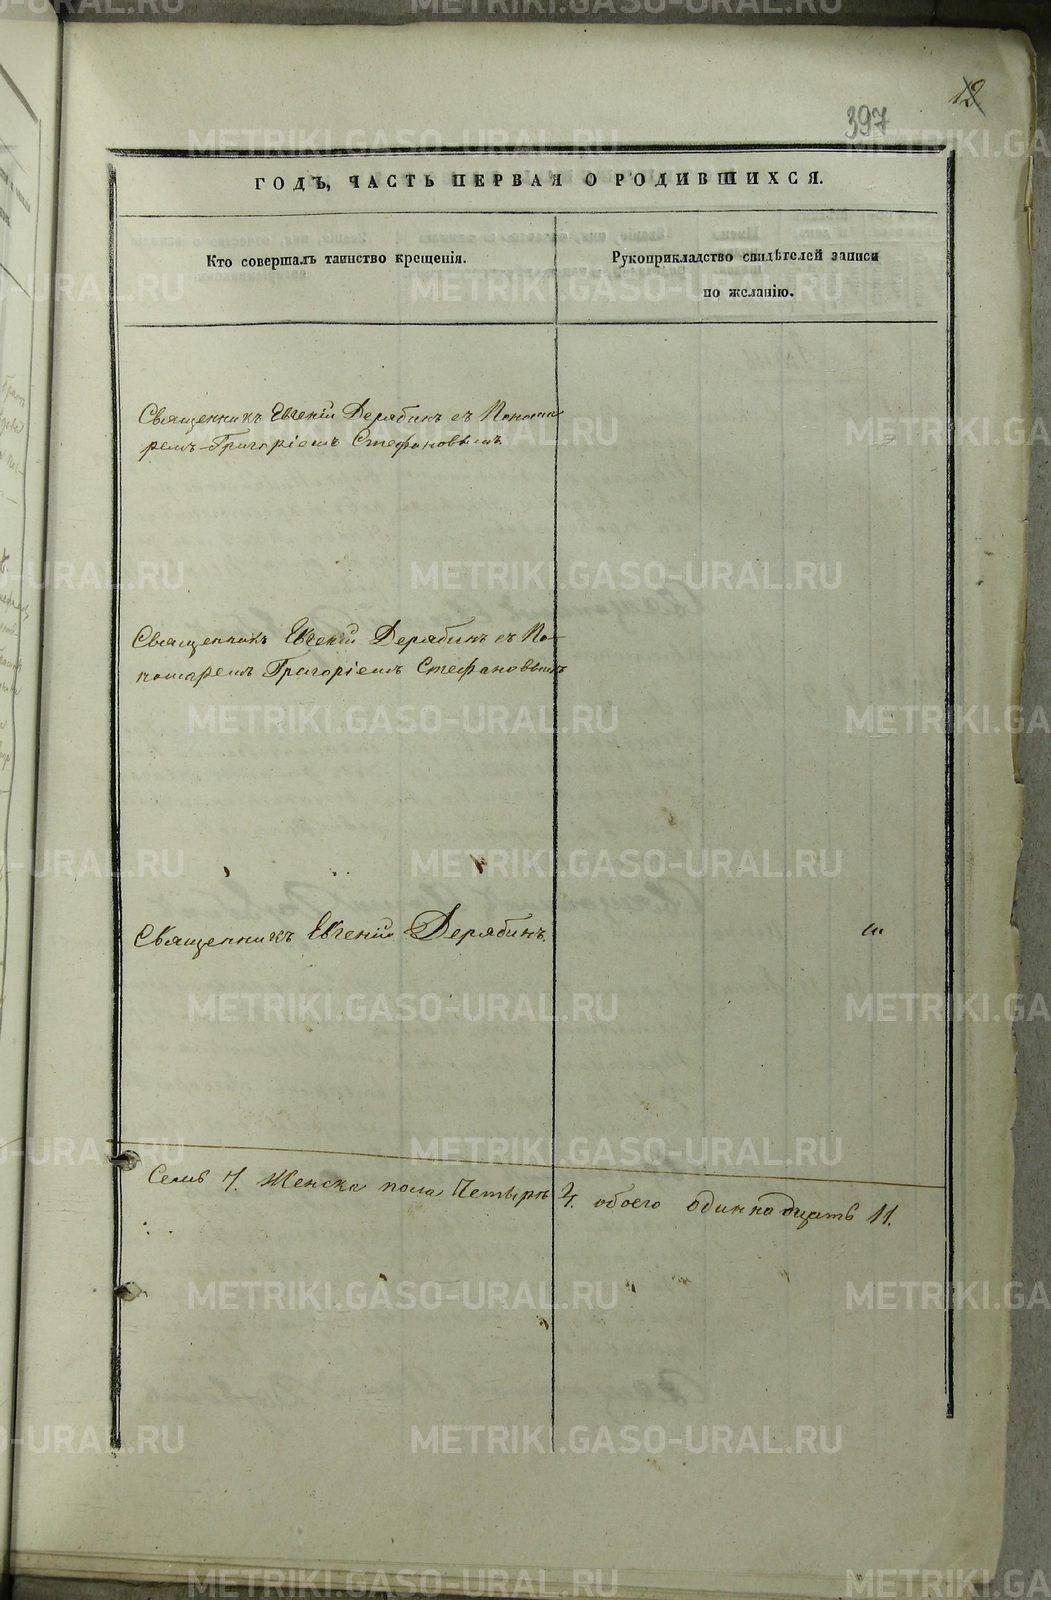 12
397
ГОДЪ, ЧАСТЬ ПЕРВАЯ О РОДИВШИХСЯ.
Кто совершалъ таинство крещенія.
Рукоприкладство свидѣтелей записи
по желанію.
Священникъ Евгеній Дерябинъ съ Понома
ремъ Григоріемъ Стефановымъ
Священникъ Евгеній Дерябинъ съ По-
номаремъ Григоріемъ Стефановымъ
Священникъ Евгеній Дерябинъ.
Семь 7. Женска пола Четыре 4. обоего одиннадцать 11.
METRIKI.GASO-URAL.RU